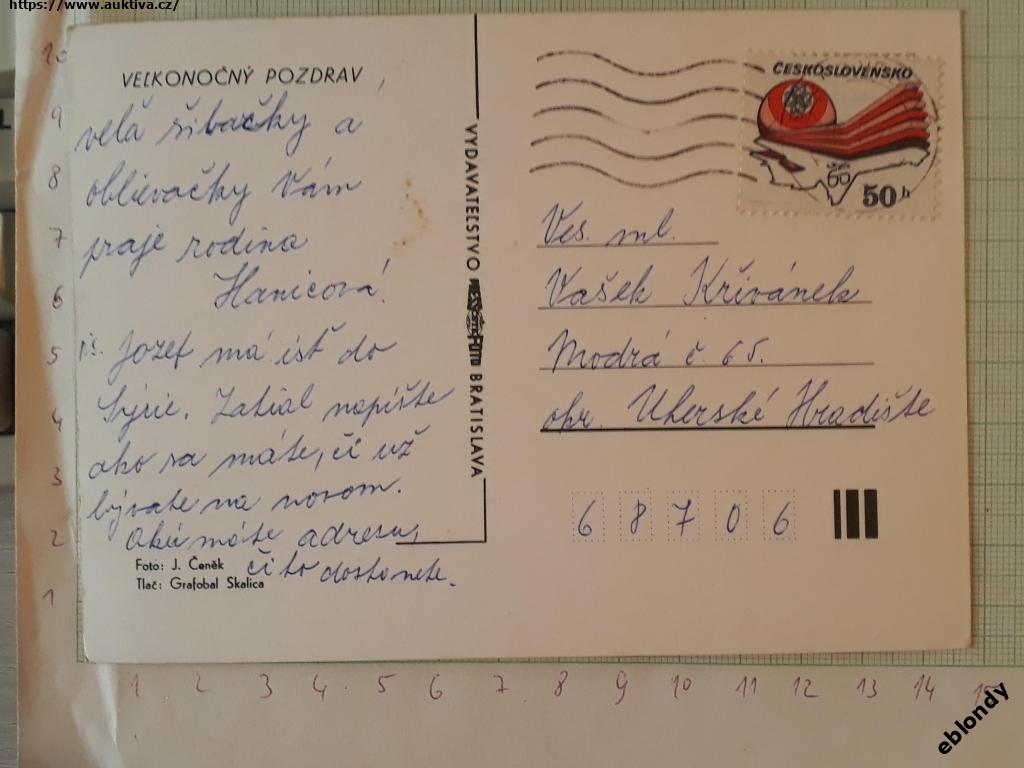 https://www.auktiva.cz/
VEĽKONOČNÝ POZDRAV,
veľa šibačky a
oblievačky Vám
praje rodina
Hanicová!
P.S. Jozef má ísť do
Sýrie. Zatiaľ napíšte
ako sa máte, či už
bývate na novom.
Akú máte adresu,
či to dostanete.
Foto: J. Čeněk
Tlač: Grafobal Skalica
VYDAVATEĽSTVO
BRATISLAVA
ČESKOSLOVENSKO
50 h
Ves. ml.
Vašek Křivánek
Modrá č. 65.
okr. Uherské Hradište
6 8 7 0 6
10
9
8
7
6
5
4
3
2
1
1 2 3 4 5 6 7 8 9 10 11 12 13 14 15
eblondy